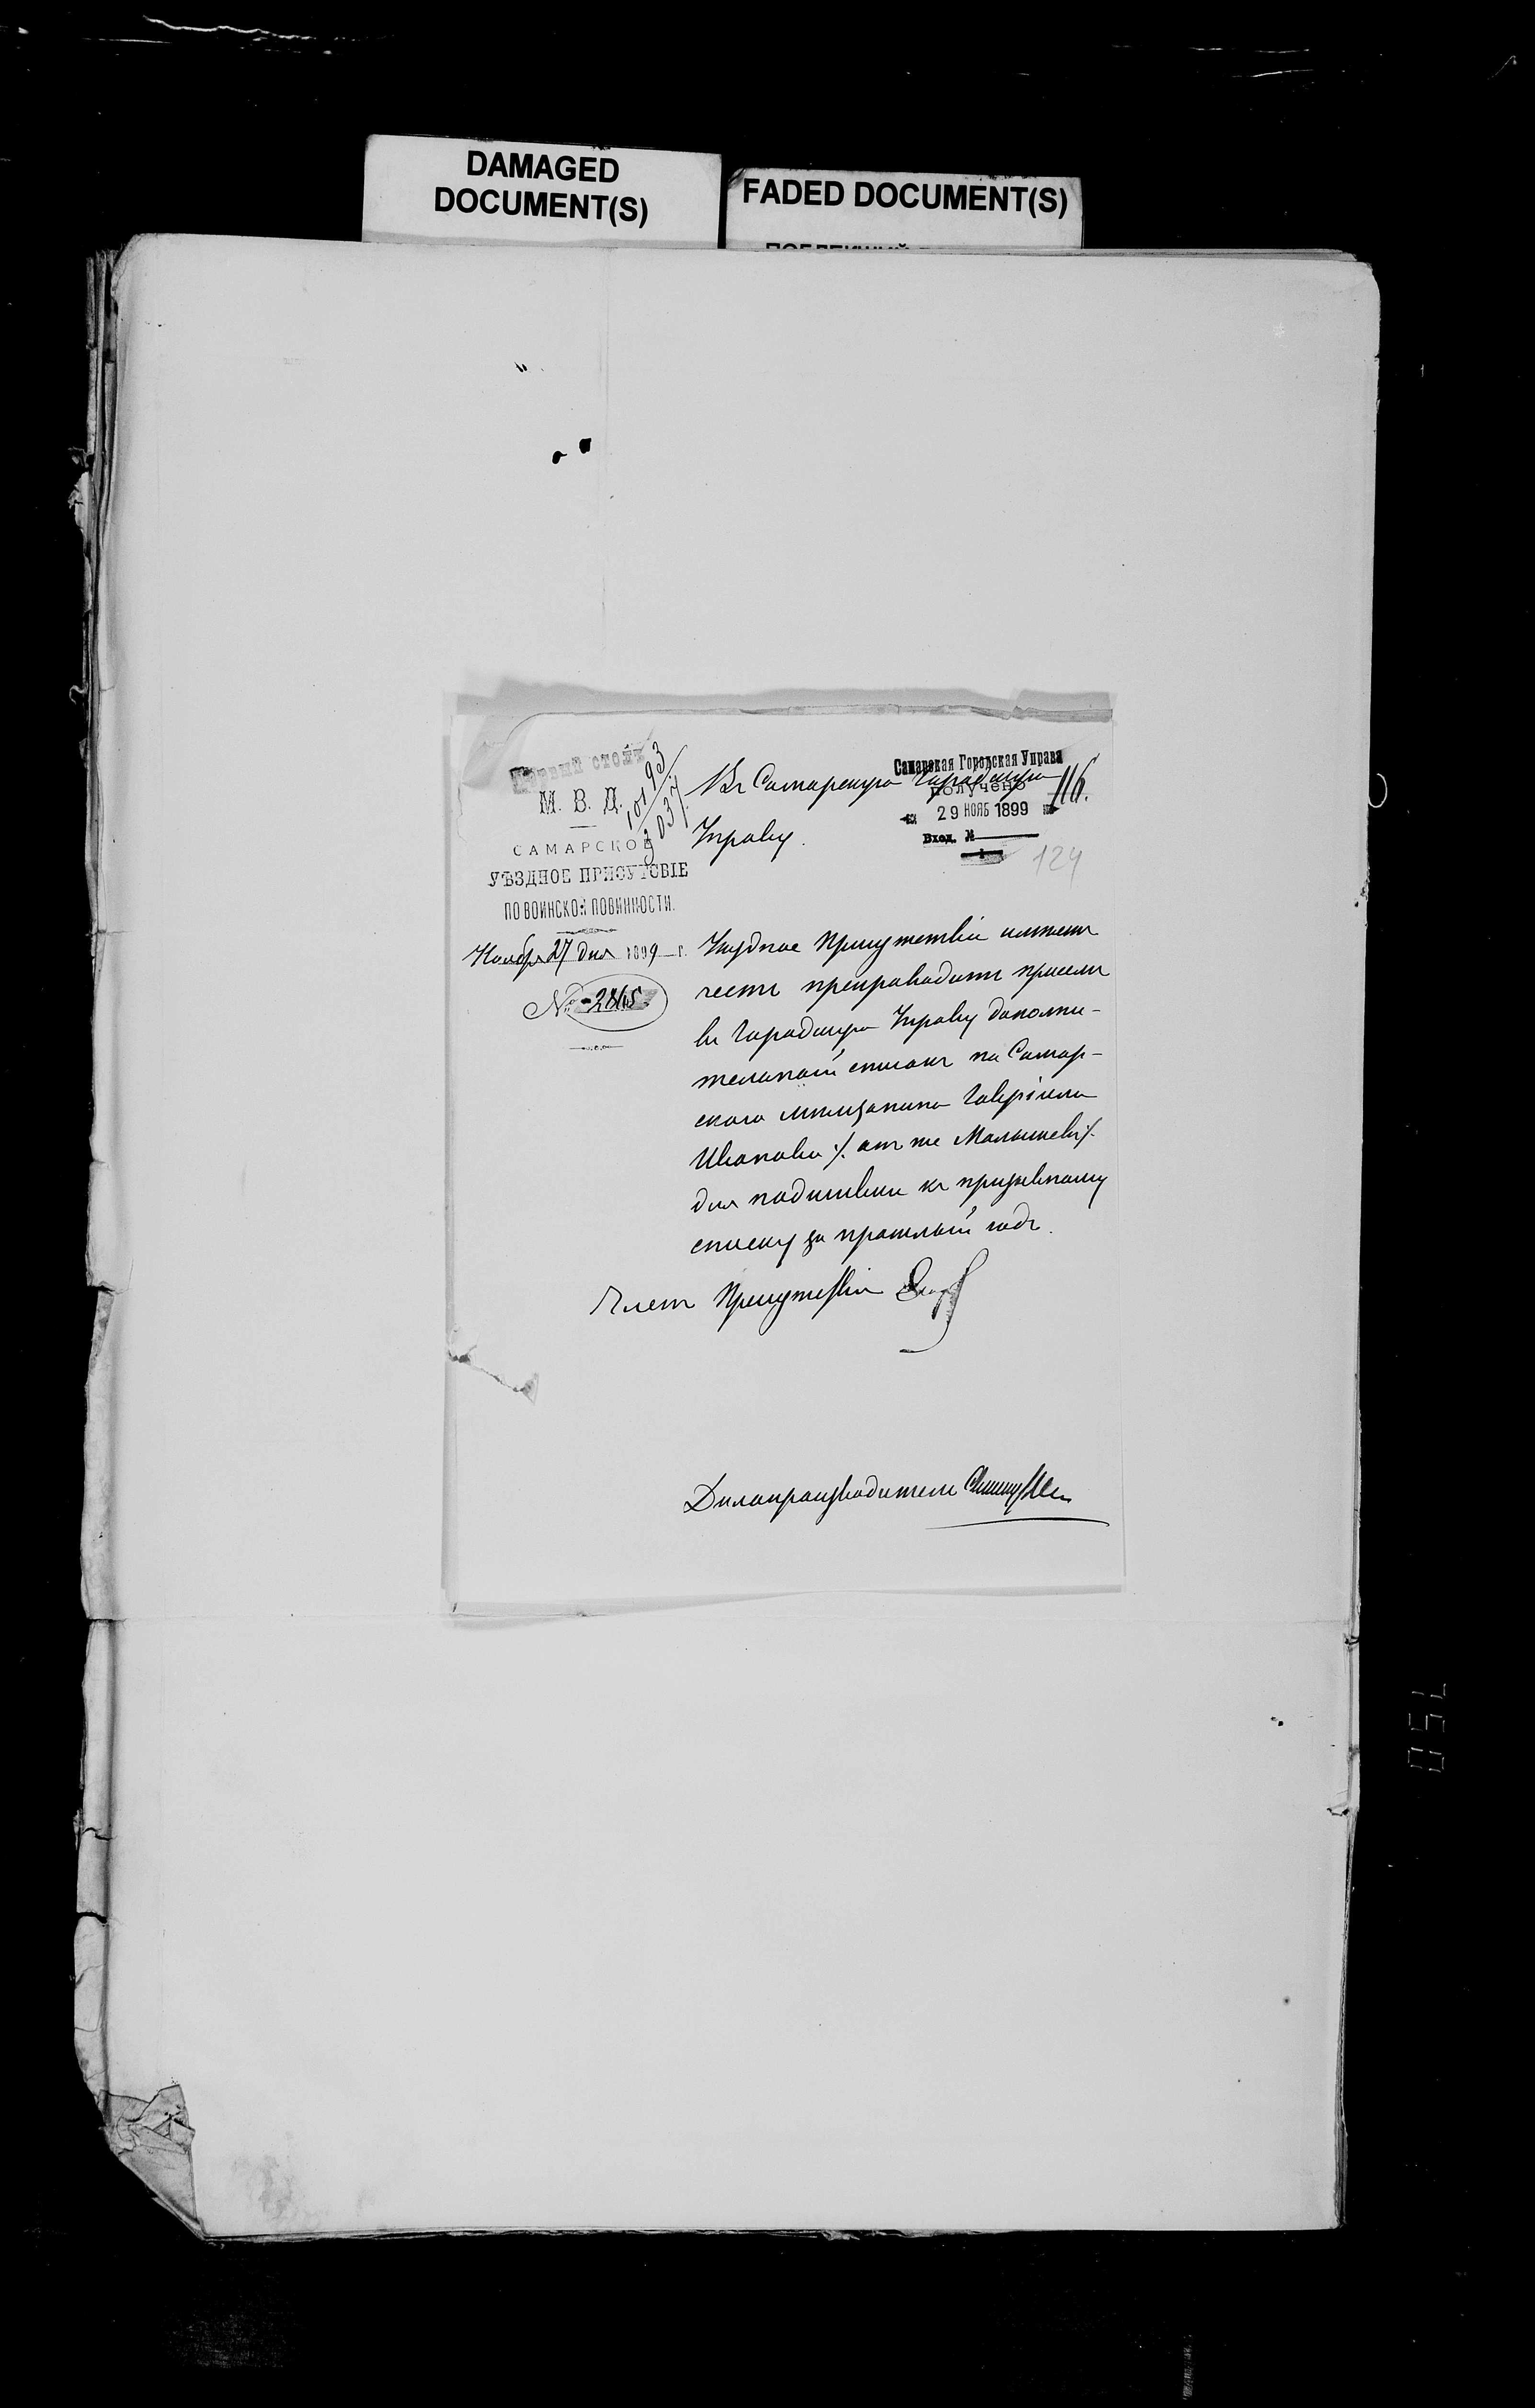 DAMAGED
DOCUMENT(S)
FADED DOCUMENT(S)
Первый столъ
10193
3037
М. В. Д.
САМАРСКОЕ
УѢЗДНОЕ ПРИСУТСВІЕ
ПО ВОИНСКОЙ ПОВИННОСТИ.
Ноября 27 дня 1899 г.
№ 2865
Самарская Городская Управа
ПОЛУЧЕНО
29 НОЯБ 1899
Вход. №
116.
124
Въ Самарскую Городскую
Управу.
Уѣздное Присутствіе имѣетъ
честь препроводить при семъ
въ Городскую Управу дополни-
тельный списокъ на Самар-
скаго мѣщанина Гавріила
Иванова /. онъ же Малышевъ /.
для подшивки къ призывному
списку за прошлый годъ.
Членъ Присутствія
Дѣлопроизводитель
150